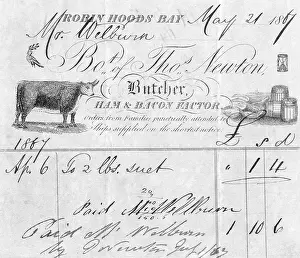 ROBIN HOODS BAY May 21 1867
Mr Welburn
Bot. of Thos. Newton,
Butcher,
HAM & BACON FACTOR
Orders from Families punctually attended to
Ships supplied on the shortest notice.
1867 £ s d
Ap 6 To 2 lbs. suet " 1 4
Paid Mr Welburn
Paid Mr Welburn 1 10 6
by